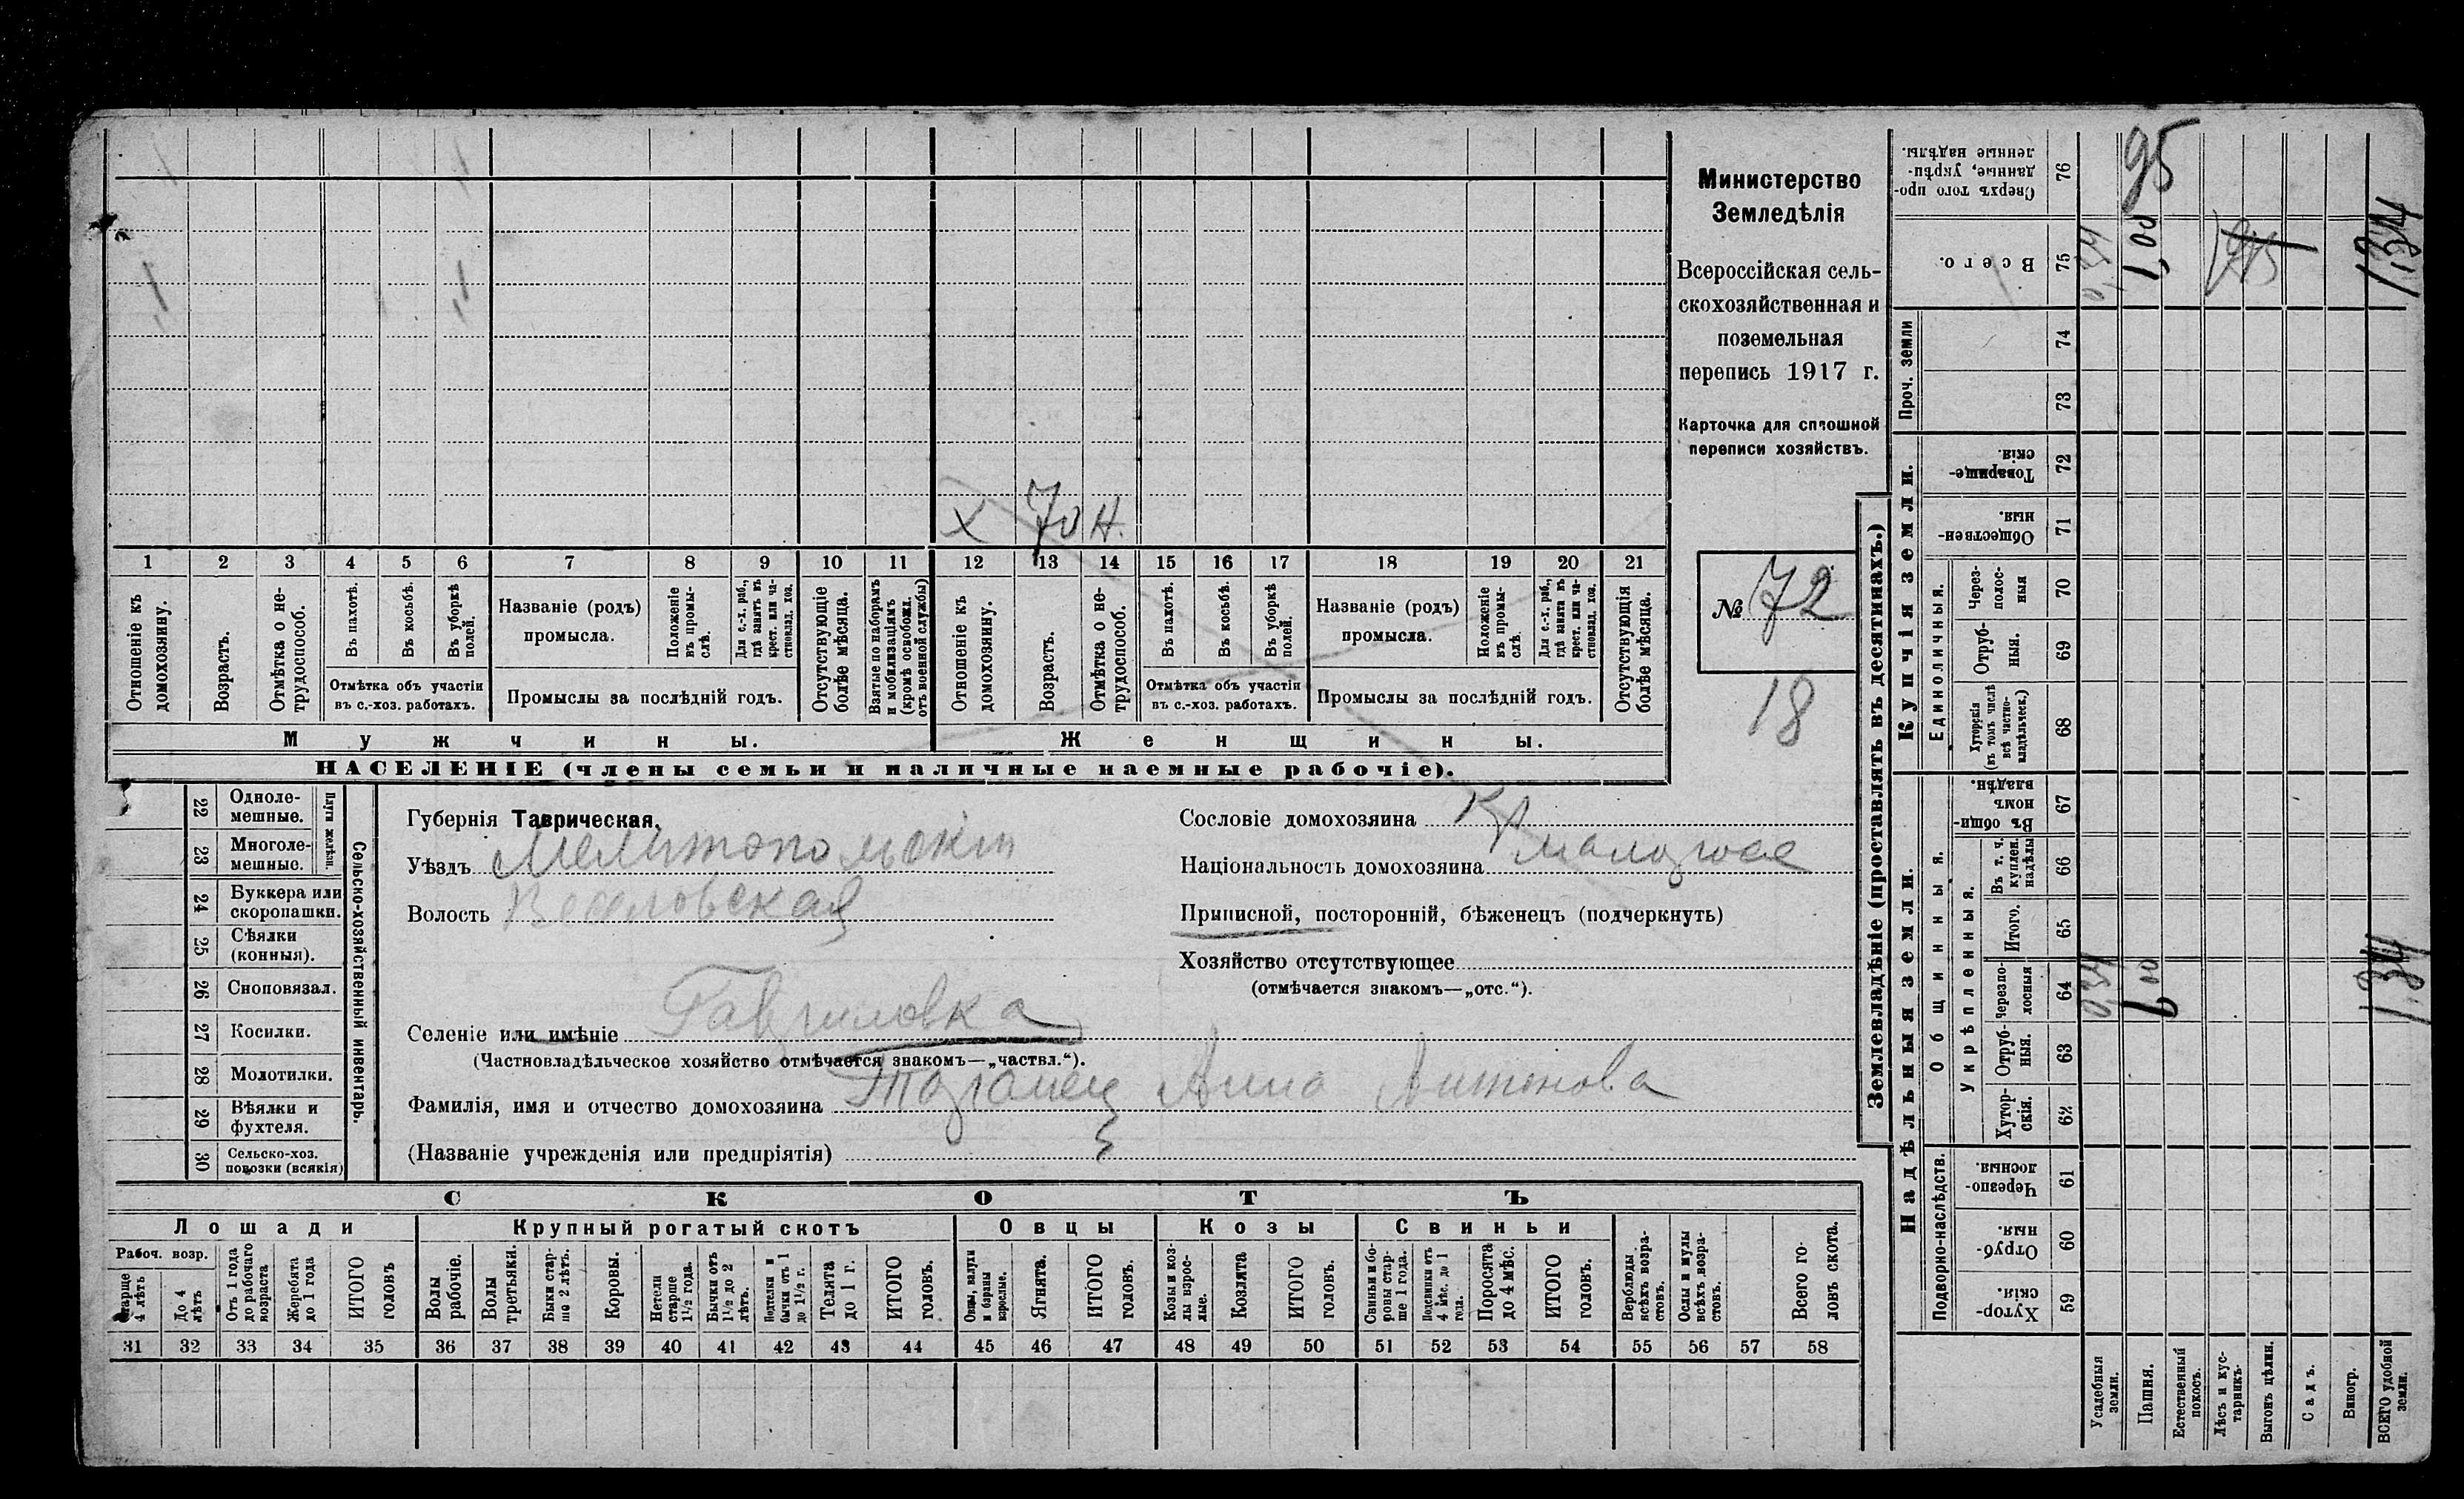 Министерство
Земледѣлія
Всероссійская сель-
скохозяйственная и
поземельная
перепись 1917 г.
Карточка для сплошной
переписи хозяйствъ.
№ 72
18
х 70 н.
1 2 3 4 5 6 7 8 9 10 11 12 13 14 15 16 17 18 19 20 21
Отношеніе къ домохозяину.
Возрастъ.
Отмѣтка о не-
трудоспособ.
Въ пахотѣ.
Въ косьбѣ.
Въ уборкѣ
полей.
Отмѣтка объ участіи
въ с.-хоз. работахъ.
Названіе (родъ)
промысла.
Положеніе
въ промы-
слѣ.
Для с.-х. раб.,
гдѣ занятъ въ
крест. или ча-
стновлад. хоз.
Промыслы за послѣдній годъ.
Отсутствующіе
болѣе мѣсяца.
Взятые по наборамъ
и мобилизаціямъ
(кромѣ освобожд.
отъ военной службы)
Отношеніе къ
домохозяину.
Возрастъ.
Отмѣтка о не-
трудоспособ.
Въ пахотѣ.
Въ косьбѣ.
Въ уборкѣ
полей.
Отмѣтка объ участіи
въ с.-хоз. работахъ.
Названіе (родъ)
промысла.
Положеніе
въ промы-
слѣ.
Для с.-х. раб.,
гдѣ занята въ
крест. или ча-
стновлад. хоз.
Промыслы за послѣдній годъ.
Отсутствующія
болѣе мѣсяца.
Мужчины.
Женщины.
НАСЕЛЕНІЕ (члены семьи и наличные наемные рабочіе).
22 Одноле-
мешные.
23 Многоле-
мешные.
Плуги желѣзн.
24 Буккера или
скоропашки.
25 Сѣялки
(конныя).
26 Сноповязал.
27 Косилки.
28 Молотилки.
29 Вѣялки и
фухтеля.
30 Сельско-хоз.
повозки (всякія)
Сельско-хозяйственный инвентарь.
Губернія Таврическая.
Уѣздъ Мелитопольскій
Волость Веселовская
Селеніе или имѣніе Гавриловка
(Частновладѣльческое хозяйство отмѣчается знакомъ—„частвл.“).
Фамилія, имя и отчество домохозяина Таранец Анна Антонова
(Названіе учрежденія или предпріятія)
Сословіе домохозяина Кр
Національность домохозяина малорос
Приписной, посторонній, бѣженецъ (подчеркнуть)
Хозяйство отсутствующее
(отмѣчается знакомъ—„отс.“).
СКОТЪ
Лошади
Рабоч. возр.
Старше
4 лѣтъ
До 4
лѣтъ
Отъ 1 года
до рабочаго
возраста
Жеребята
до 1 года
ИТОГО
головъ
Крупный рогатый скотъ
Волы
рабочіе.
Волы
третьяки.
Быки стар-
ше 2 лѣтъ.
Коровы.
Нетели
старше
1½ года.
Бычки отъ
1½ до 2
лѣтъ.
Подтелки и
бычки отъ 1
до 1½ г.
Телята
до 1 г.
ИТОГО
головъ.
Овцы
Овцы, валухи
и бараны
взрослые.
Ягнята.
ИТОГО
головъ.
Козы
Козы и коз-
лы взрос-
лые.
Козлята
ИТОГО
головъ.
Свиньи
Свиньи и бо-
ровы стар-
ше 1 года.
Подсвинки отъ
4 мѣс. до 1
года.
Поросята
до 4 мѣс.
ИТОГО
головъ.
Верблюды
всѣхъ возра-
стовъ.
Ослы и мулы
всѣхъ возра-
стовъ.
Всего го-
ловъ скота.
31 32 33 34 35 36 37 38 39 40 41 42 43 44 45 46 47 48 49 50 51 52 53 54 55 56 57 58
Землевладѣніе (проставлять въ десятинахъ.)
Надѣльныя земли.
Подворно-наслѣдств.
Хутор-
скія. 59
Отруб-
ныя. 60
Черезпо-
лосныя. 61
Общинныя.
Укрѣпленныя.
Хутор-
скія. 62
Отруб-
ныя. 63
Черезпо-
лосныя 64 0,34 1,00 1,34
Итого. 65
Въ т. ч.
куплен.
надѣлы 66
Въ общи-
номъ
владѣн. 67
Купчія земли.
Единоличныя.
Хуторскія
(въ томъ числѣ
всѣ частно-
владѣльческ.) 68
Отруб-
ныя. 69
Через-
полос-
ныя 70
Обществен-
ныя. 71
Товарище-
скія. 72
Проч. земли
73
74
Всего. 75 0,34 1,00 1,34
Сверхъ того про-
данные, укрѣп-
ленные надѣлы. 76 95
Усадебныя
земли.
Пашня.
Естественный
покосъ.
Лѣсъ и кус-
тарникъ.
Выгонъ цѣлин.
Садъ.
Виногр.
ВСЕГО удобной
земли.